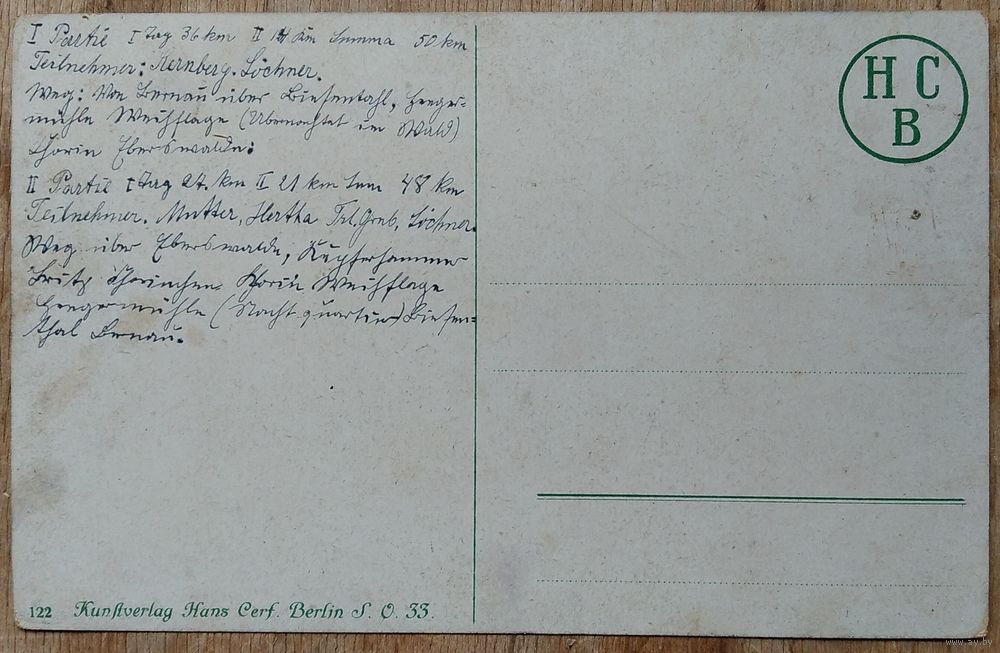 I Partie I Tag 36 km II 14 km Summa 50 km
Teilnehmer: Kernberg. Löchner.
Weg: Von Bernau über Biesentahl, Heeger=
mühle Weihflage (Übernachtet im Wald)
Chorin Eberswalde:
II Partie I Tag 27. km II 21 km Sum 48 km
Teilnehmer. Mutter, Hertha Frl. Grub, Löchner.
Weg über Eberswalde, Kupferhammer
Britz Chorinchen Korin Weihflage
Heegermühle (Nacht quartier) Biesen=
thal Bernau.
H C
B
122 Kunstverlag Hans Cerf. Berlin S. O. 33.
www.ay.by